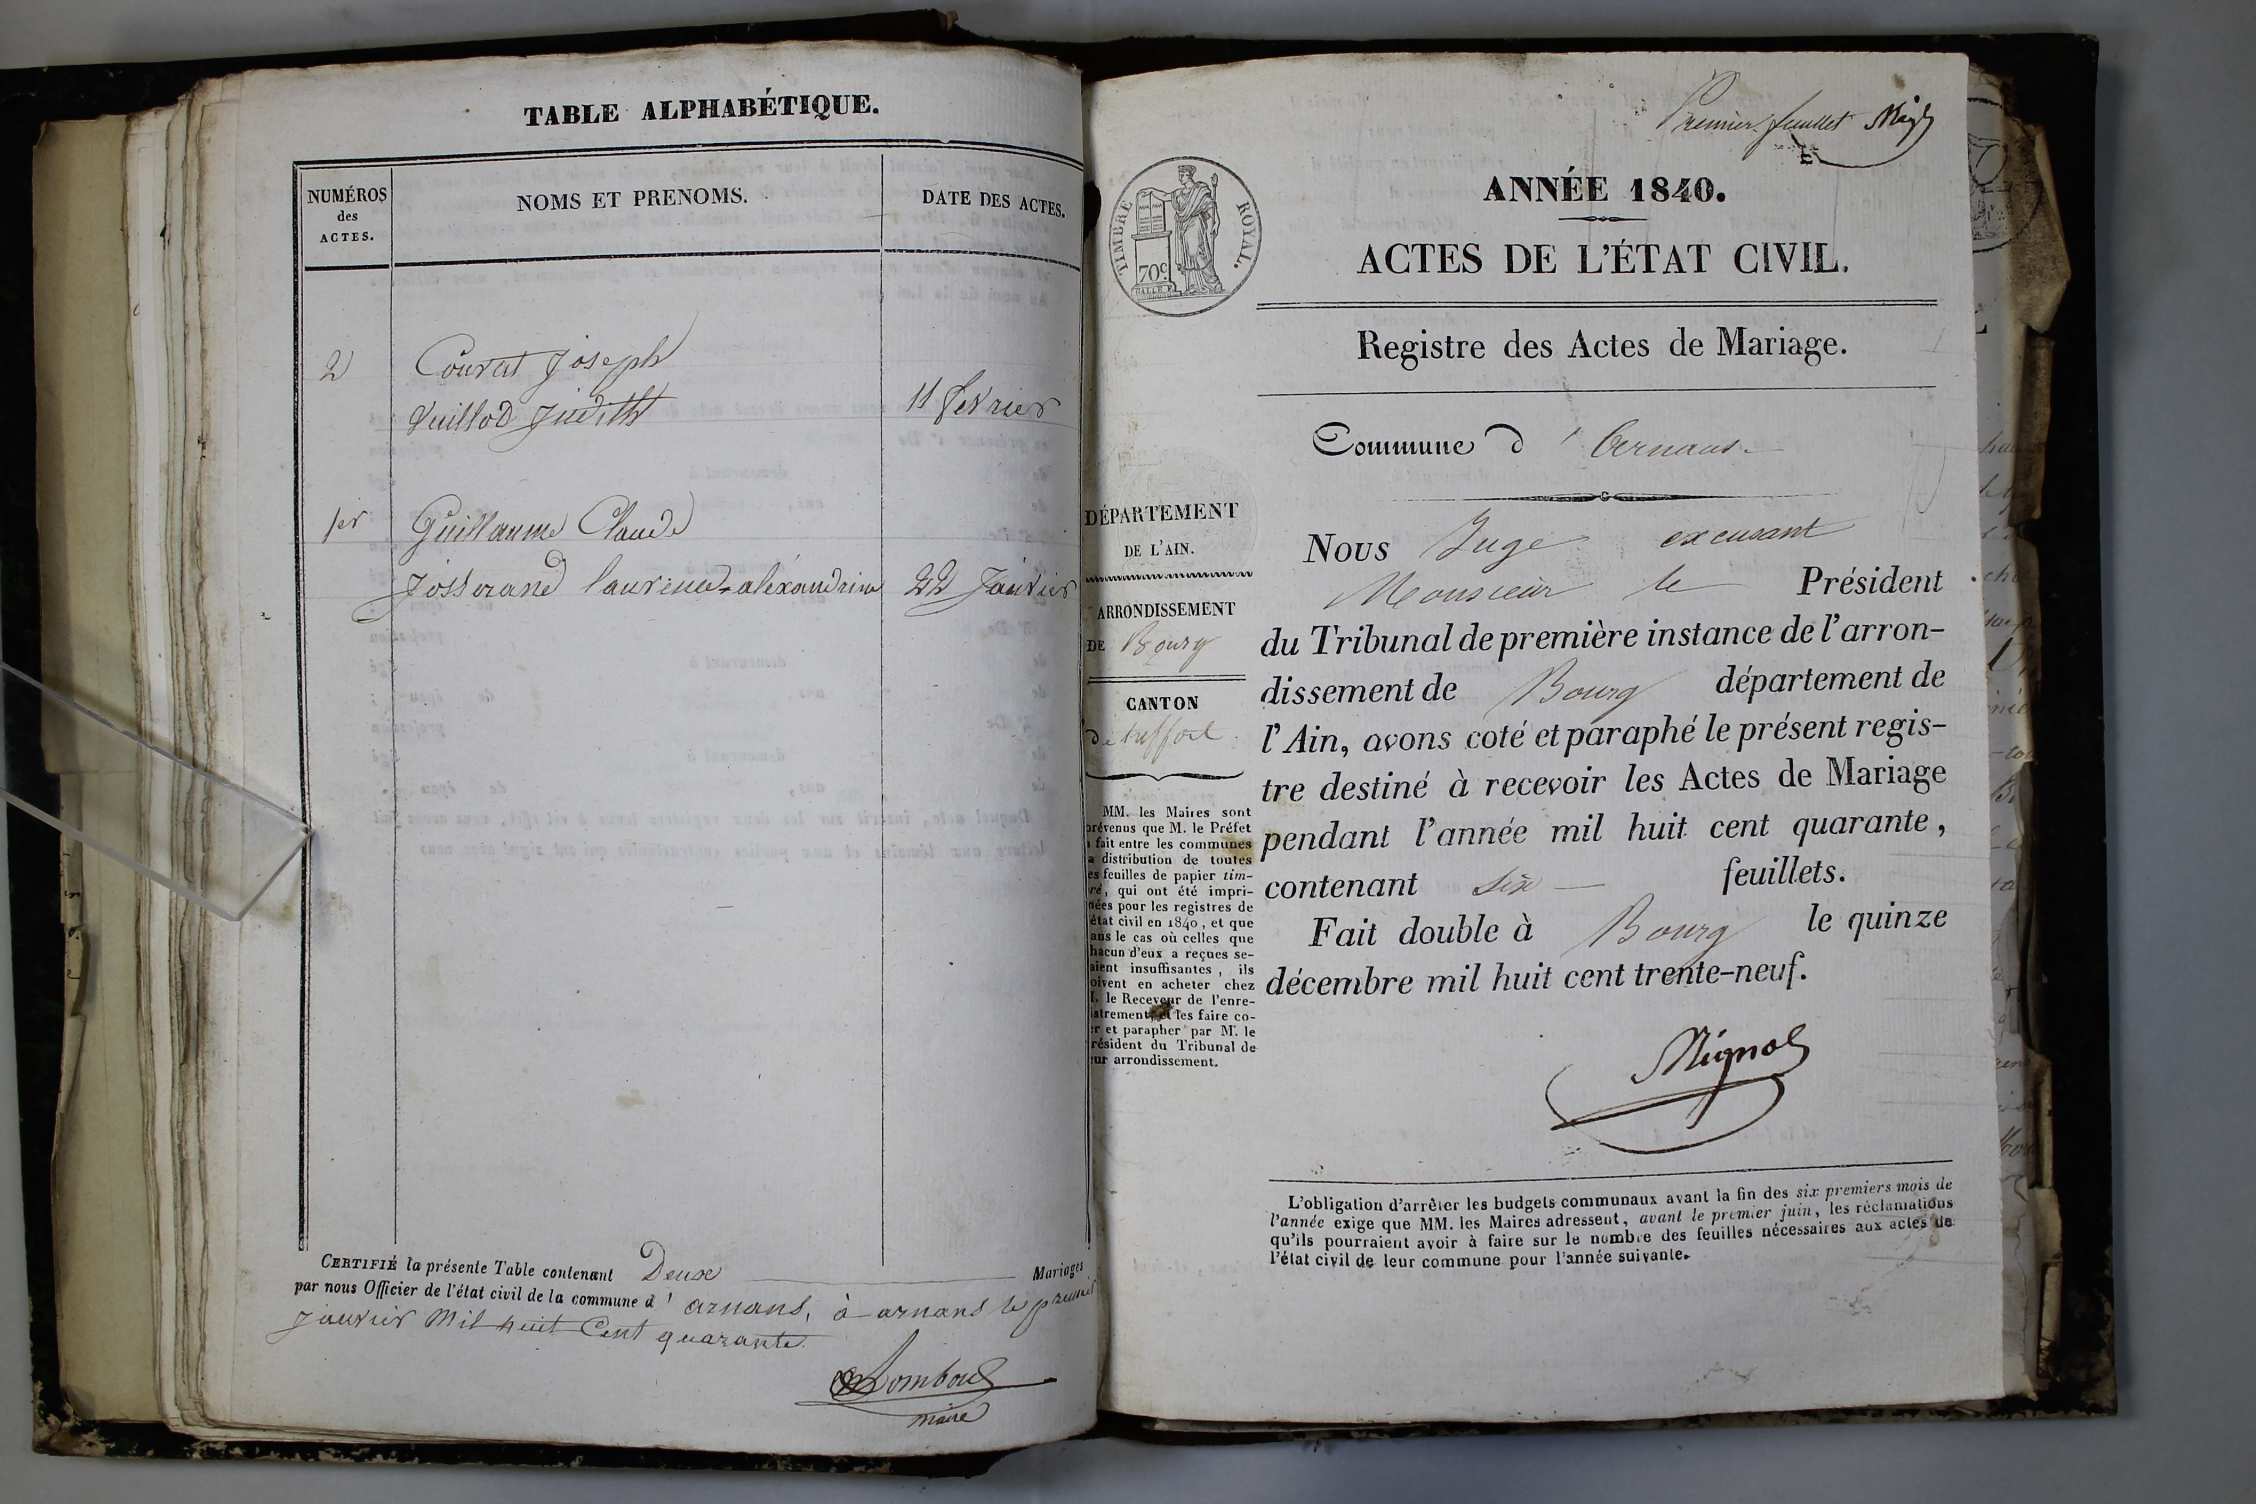 TABLE ALPHABÉTIQUE.
NUMÉROS
des
ACTES.
NOMS ET PRENOMS.
DATE DES ACTES.
2 Couvat Joseph
Vuillod Judith 11 fevrier
1er Guillaume Claude
Josserand laurence-aléxandrine 22 Janvier
CERTIFIÉ la présente Table contenant Deux Mariages
par nous Officier de l'état civil de la commune d'arnans, à arnans le premier
janvier Mil huit Cent quarante.
maire
Premier feuillet
TIMBRE ROYAL.
70c.
ANNÉE 1840.
ACTES DE L'ÉTAT CIVIL.
Registre des Actes de Mariage.
Commune d'Arnans
DÉPARTEMENT
DE L'AIN.
ARRONDISSEMENT
DE Bourg
CANTON
de treffort
MM. les Maires sont
prévenus que M. le Préfet
fait entre les communes
distribution de toutes
feuilles de papier tim-
ré, qui ont été impri-
mées pour les registres de
état civil en 1840, et que
ans le cas où celles que
hacun d'eux a reçues se-
aient insuffisantes, ils
oivent en acheter chez
le Receveur de l'enre-
istrement, et les faire co-
er et parapher par Mr. le
résident du Tribunal de
eur arrondissement.
NOUS Juge excusant
Monsieur le Président
du Tribunal de première instance de l'arron-
dissement de Bourg département de
l'Ain, avons coté et paraphé le présent regis-
tre destiné à recevoir les Actes de Mariage
pendant l'année mil huit cent quarante,
contenant six feuillets.
Fait double à Bourg le quinze
décembre mil huit cent trente-neuf.
Mignot
L'obligation d'arrêter les budgets communaux avant la fin des six premiers mois de
l'année exige que MM. les Maires adressent, avant le premier juin, les réclamations
qu'ils pourraient avoir à faire sur le nombre des feuilles nécessaires aux actes de
l'état civil de leur commune pour l'année suivante.